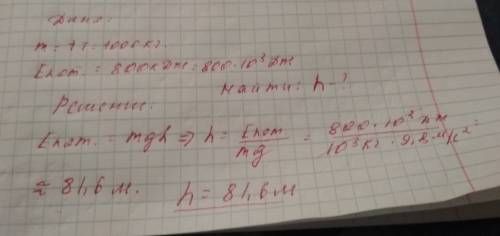 Дано:
m = 1т = 1000кг.
Eпот. = 800кДж = 800·10³Дж
Найти: h - ?
Решение:
Eпот. = mgh ⇒ h = Eпот/mg = 800·10³Дж/10³кг·9,8м/с² =
≈ 81,6 м. h = 81,6 м